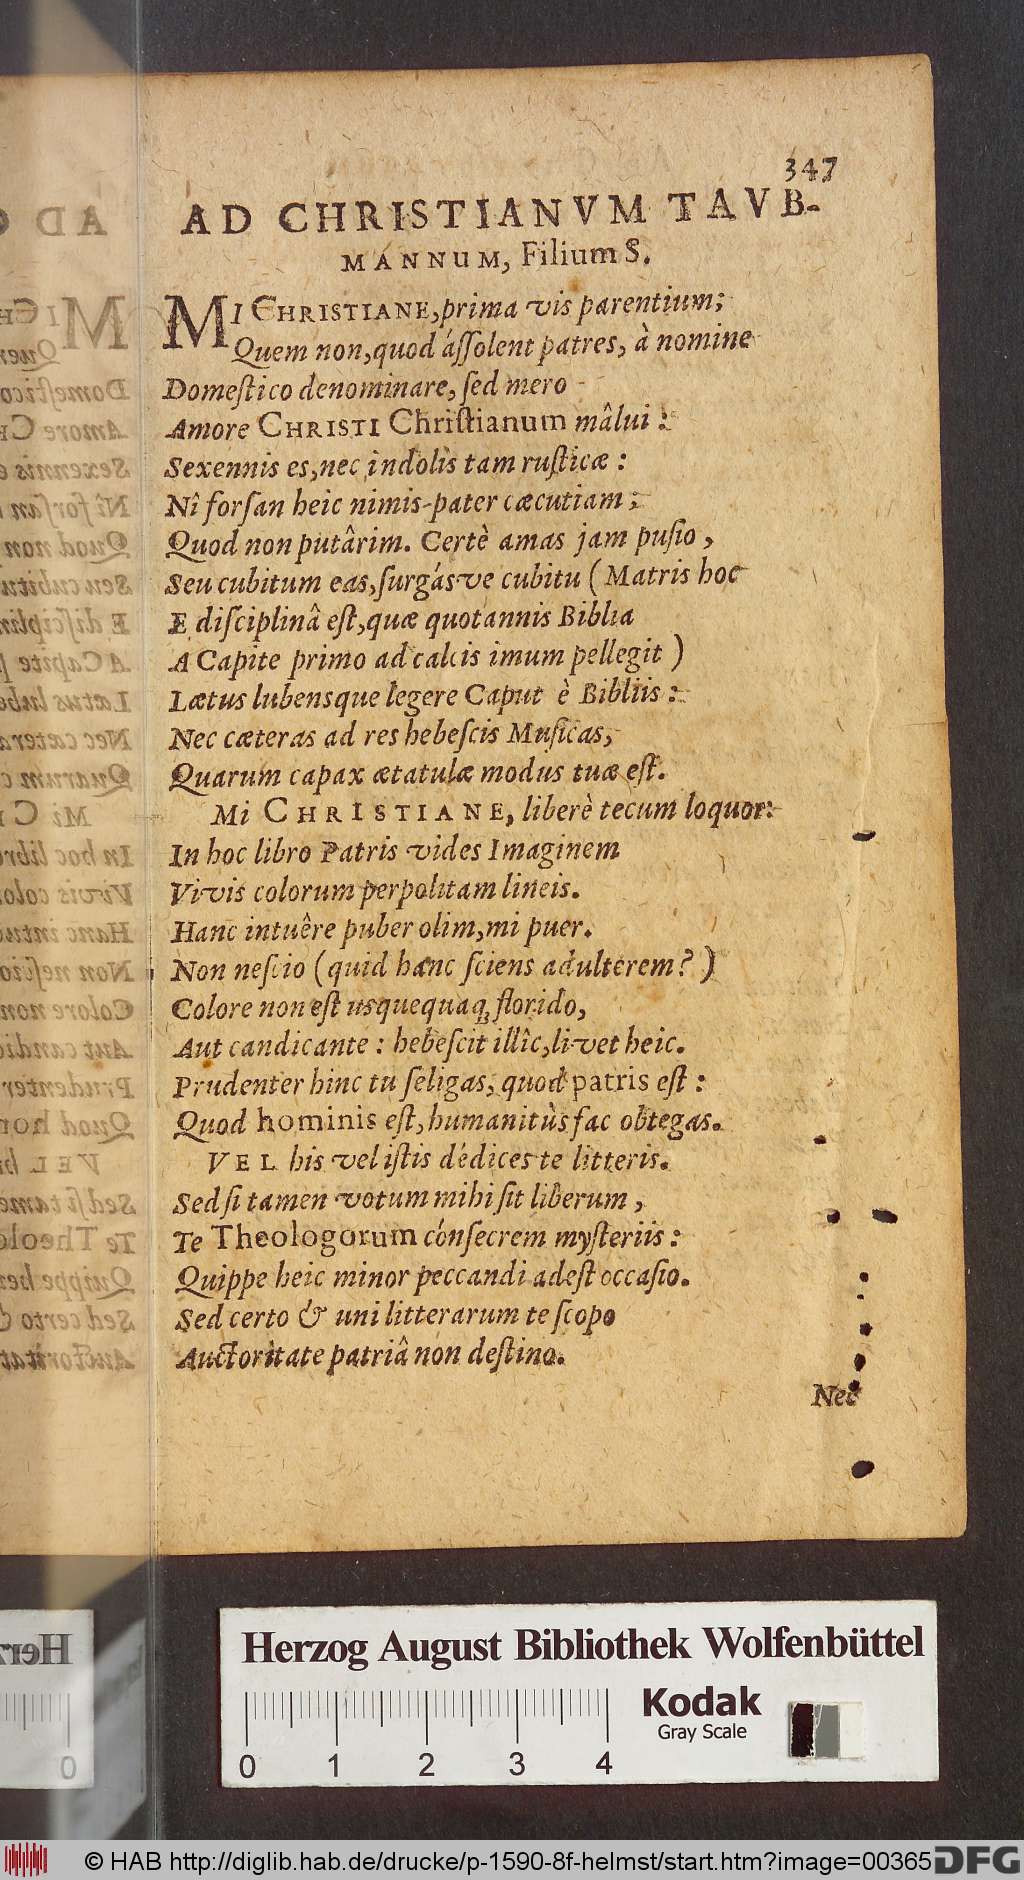 347
AD CHRISTIANVM TAVB-
MANNUM, Filium S.
MI CHRISTIANE, prima vis parentium;
Quem non, quod ássolent patres, à nomine
Domestico denominare, sed mero
Amore CHRISTI Christianum mâlui:
Sexennis es, nec indolis tam rusticæ:
Nî forsan heic nimis-pater cæcutiam;
Quod non putârim. Certè amas jam pusio,
Seu cubitum eas, surgásve cubitu (Matris hoc
E disciplinâ est, quæ quotannis Biblia
A Capite primo ad calcis imum pellegit)
Lætus lubensque legere Caput è Bibliis:
Nec cæteras ad res hebescis Musicas,
Quarum capax ætatulæ modus tuæ est.
Mi CHRISTIANE, liberè tecum loquor:
In hoc libro Patris vides Imaginem
Vivis colorum perpolitam lineis.
Hanc intuêre puber olim, mi puer.
Non nescio (quid hanc sciens adulterem?)
Colore non est usquequaq; florido,
Aut candicante: hebescit illîc, livet heic.
Prudenter hinc tu seligas, quod patris est:
Quod hominis est, humanitùs fac obtegas.
VEL his vel istis dédices te litteris.
Sed si tamen votum mihi sit liberum,
Te Theologorum cónsecrem mysteriis:
Quippe heic minor peccandi adest occasio.
Sed certo & uni litterarum te scopo
Auctoritate patriâ non destino.
Nec
Herzog August Bibliothek Wolfenbüttel
0 1 2 3 4
Kodak
Gray Scale
© HAB http://diglib.hab.de/drucke/p-1590-8f-helmst/start.htm?image=00365
DFG